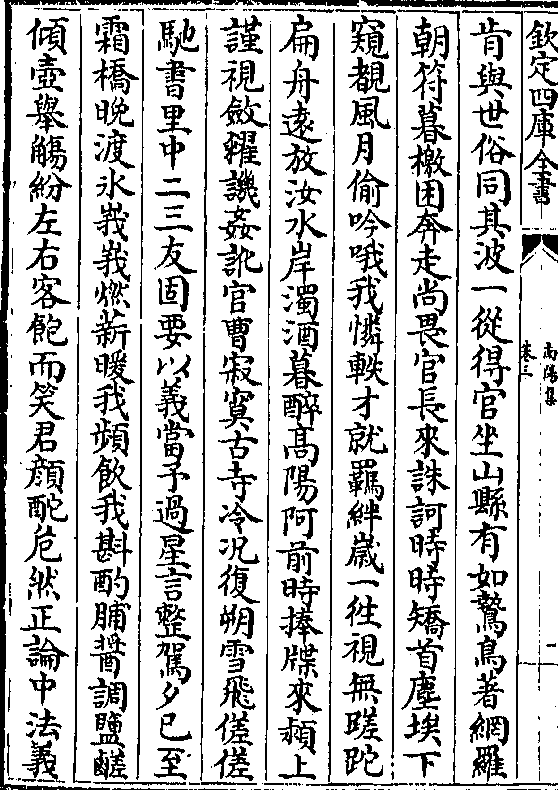 欽定四庫全書
南陽集
卷三
二
肯與世俗同其波一從得官坐山縣有如鷙鳥著網羅
朝符暮檄困奔走尚畏官長來誅訶時時矯首塵埃下
窺覩風月偷吟哦我憐軼才就羈絆歲一往視無蹉跎
扁舟遠放汝水岸濁酒暮醉高陽阿前時捧牒來潁上
謹視斂糴譏姦訛官曹寂寞古寺冷況復朔雪飛傞傞
馳書里中二三友固要以義當予過星言整駕夕已至
霜橋晚渡氷峩峩燃薪暖我頻飲我斟酌脯醬調鹽醝
傾壺舉觴紛左右客飽而笑君顔酡危然正論中法義